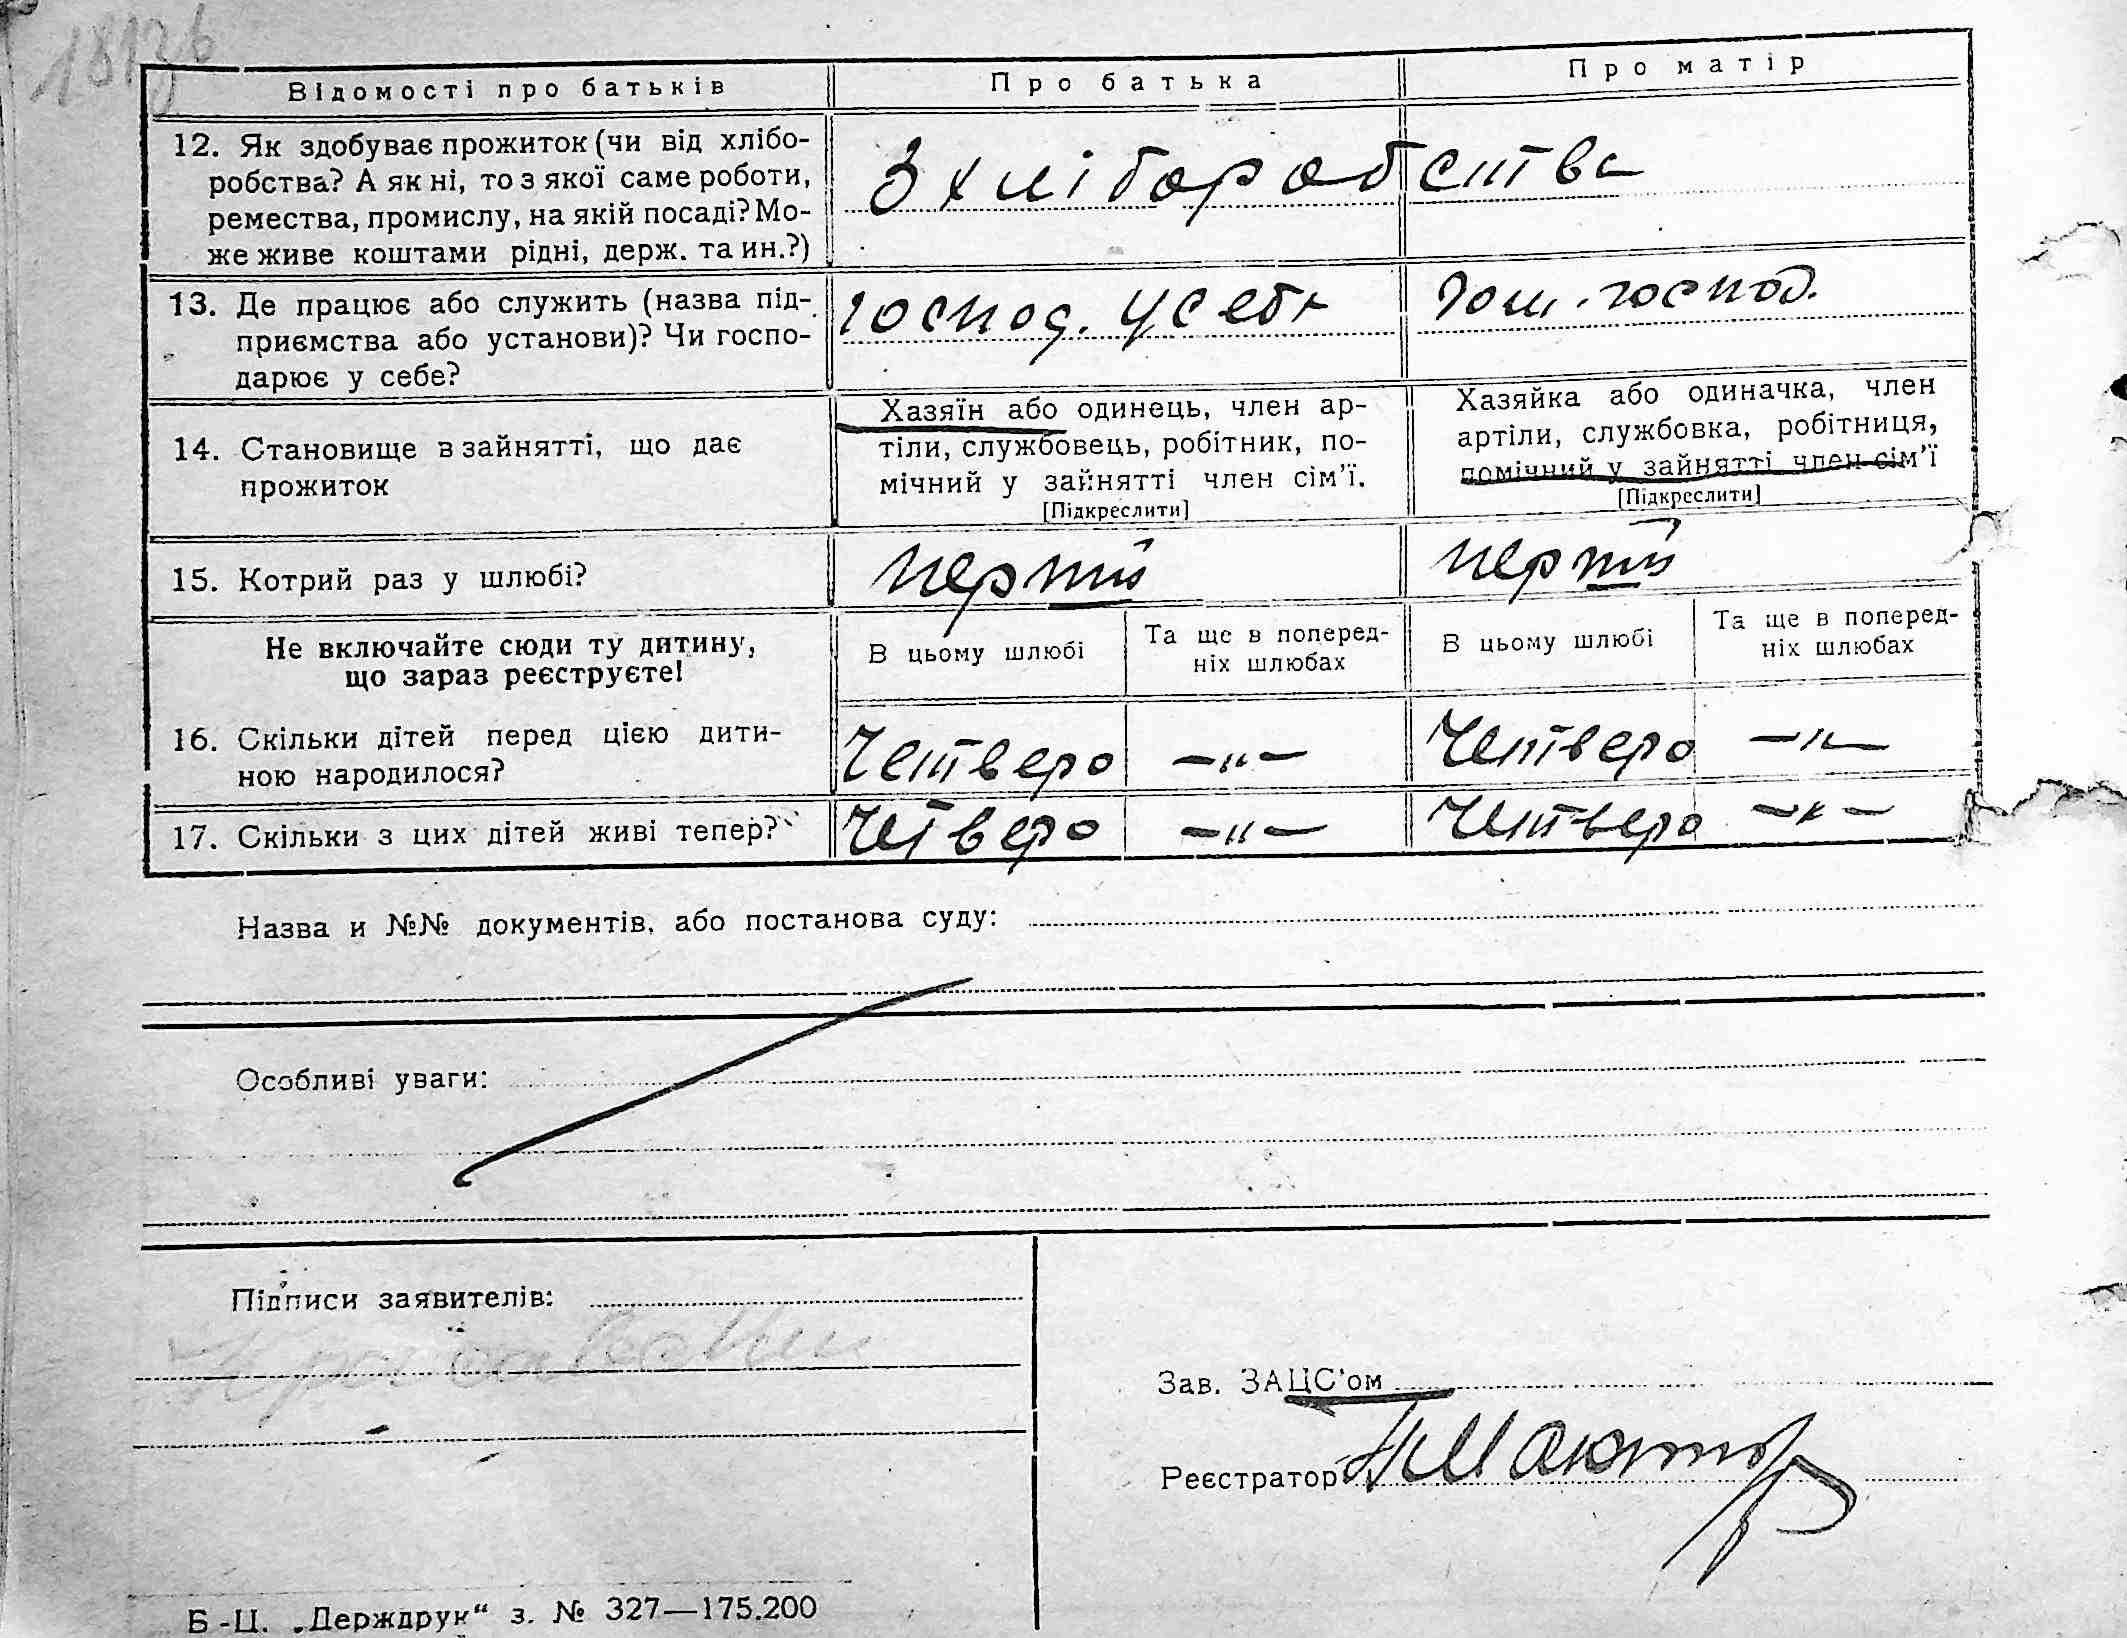 Відомості про батьків Про батька Про матір
12. Як здобуває прожиток (чи від хлібо-
робства? А як ні, то з якої саме роботи,
ремества, промислу, на якій посаді? Мо-
же живе коштами рідні, держ. та ин.?)
З хліборобства
13. Де працює або служить (назва під-
приємства або установи)? Чи госпо-
дарює у себе?
господ. у себе
дом. господ.
14. Становище в зайнятті, що дає
прожиток
Хазяїн або одинець, член ар-
тіли, службовець, робітник, по-
мічний у зайнятті член сім'ї.
[Підкреслити]
Хазяйка або одиначка, член
артіли, службовка, робітниця,
помічний у зайнятті член сім'ї
[Підкреслити]
15. Котрий раз у шлюбі?
перший перший
Не включайте сюди ту дитину,
що зараз реєструєте!
В цьому шлюбі
Та ще в поперед-
ніх шлюбах
В цьому шлюбі
Та ще в поперед-
ніх шлюбах
16. Скільки дітей перед цією дити-
ною народилося?
Четверо —"— Четверо —"—
17. Скільки з цих дітей живі тепер? Четверо —"— Четверо —"—
Назва и №№ документів, або постанова суду:
Особливі уваги:
Підписи заявителів:
Зав. ЗАЦС'ом
Реєстратор
Б-Ц. „Держдрук" з. № 327—175.200